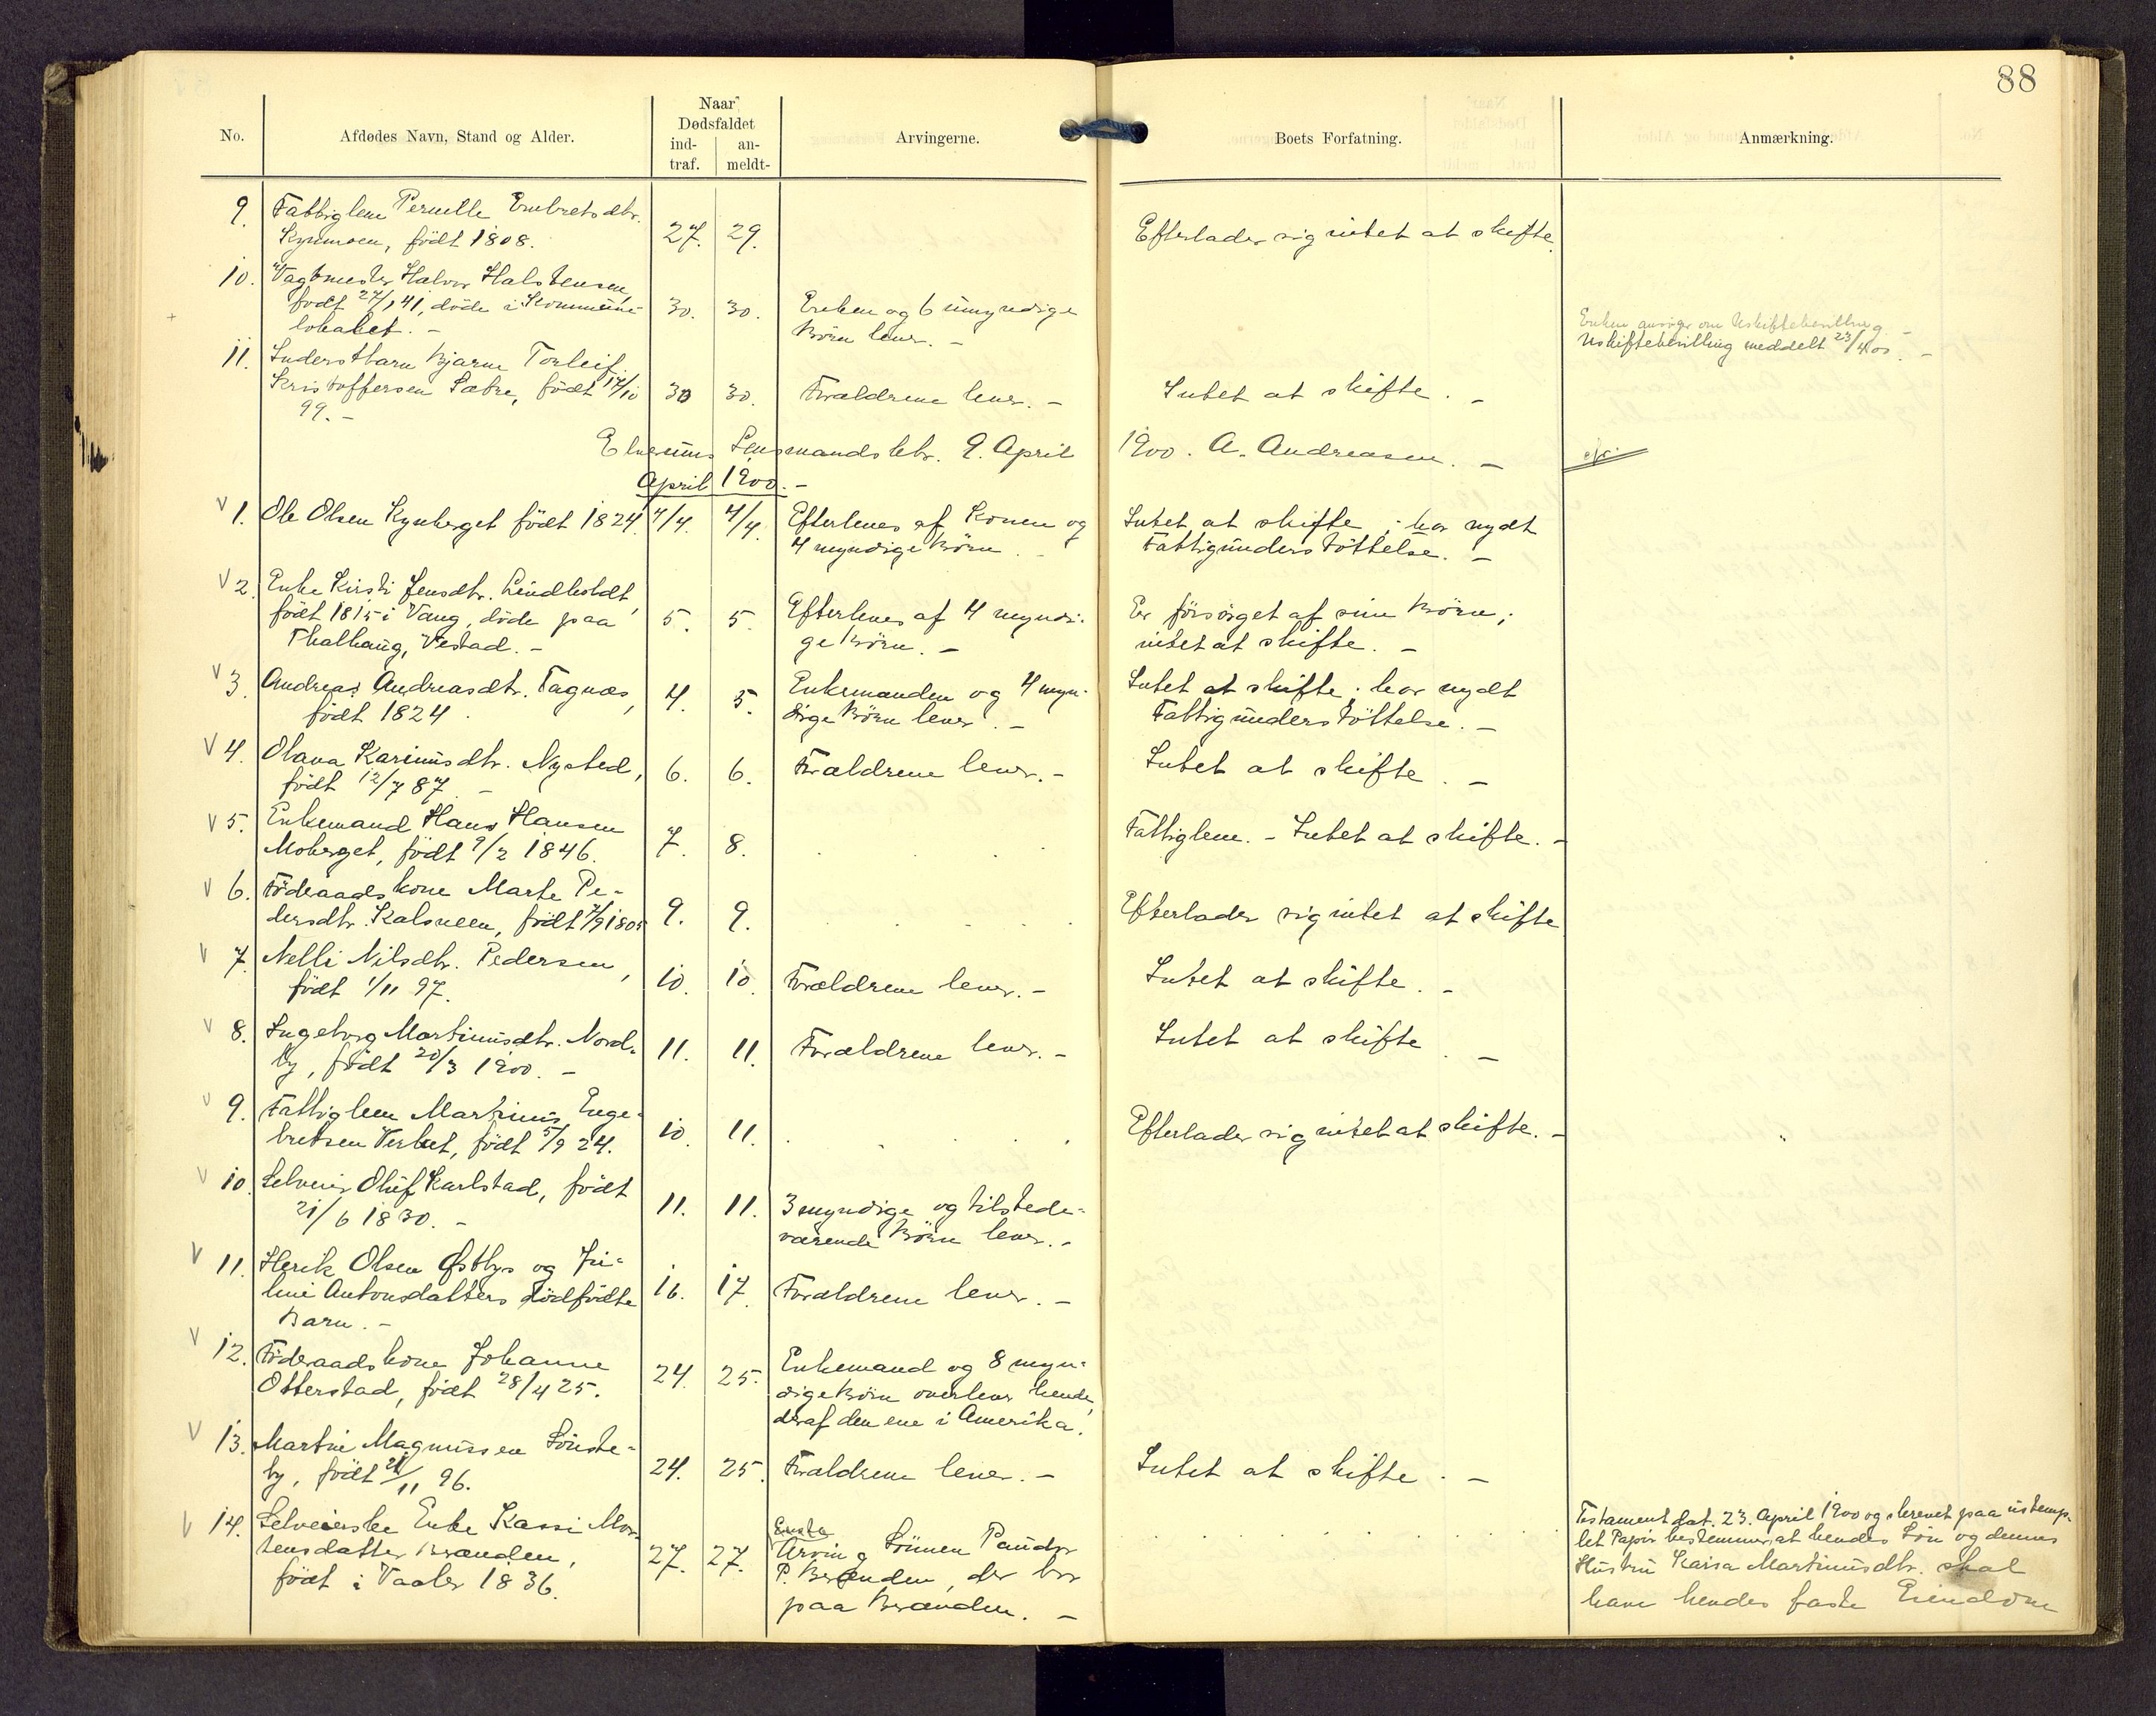 88
No.
Afdødes Navn, Stand og Alder.
Naar
Dødsfaldet
ind-
traf.
an-
meldt-
Arvingerne.
Boets Forfatning.
Anmærkning.
9. Fattiglem Pernille Embretsdtr. 27. 29. Efterlader sig intet at skifte.
Kynmoen, født 1808.
10. Vagtmester Halvor Halstensen,
født 27/1 41, døde i Kommune- 30. 30. Enken og 6 umyndige
lokalet. - Børn lever. -
Enken ansøger om Uskiftebevilling. -
Uskiftebevilling meddelt 23/4 00. -
11. Inderstbarn Bjarne Torleif
Kristoffersen Sætre, født 17/10 30 30. Forældrene lever. - Intet at skifte. -
99. -
Elverums Lensmandsbtr. 9. April 1900. A. Andreasen. -
April 1900. -
V 1. Ole Olsen Kynberget født 1824. 4/4. 4/4. Efterleves af Konen og Intet at skifte; har nydt
4 myndige Børn. - Fattigunderstøttelse. -
V 2. Enke Kirsti Jensdtr. Lindholdt,
født 1815 i Vang, døde paa 5. 5. Efterleves af 4 myndi- Er forsørget af sine Børn;
Thalhaug, Vestad. - ge Børn. - intet at skifte. -
V 3. Andrea Andreasdtr. Fagnæs, 4. 5. Enkemanden og 4 myn- Intet at skifte; har nydt
født 1824. dige Børn lever. - Fattigunderstøttelse. -
V 4. Olava Karinusdtr. Nysted, 6. 6. Forældrene lever. - Intet at skifte. -
født 12/7 87. -
V 5. Enkemand Hans Hansen 7. 8. Fattiglem. - Intet at skifte. -
Moberget, født 9/2 1846.
V 6. Føderaadskone Marte Pe- 9. 9. Efterlader sig intet at skifte
dersdtr. Kalsveen, født 7/9 1805
V 7. Nelli Nilsdtr. Pedersen, 10. 10. Forældrene lever. - Intet at skifte. -
født 1/11 97.
V 8. Ingeborg Martinusdtr. Nord- 11. 11. Forældrene lever. - Intet at skifte. -
by, født 20/3 1900. -
V 9. Fattiglem Martinus Enge- 10. 11. Efterlader sig intet at skifte. -
bretsen født 5/9 24.
V 10. Selveier Oluf Karlstad, født 11. 11. 3 myndige og tilstede-
21/6 1830. - værende Børn lever. -
V 11. Henrik Olsen Østbys og Ju-
line Antonsdatters dødfødte 16. 17. Forældrene lever. -
Barn. -
V 12. Føderaadskone Johanne 24. 25. Enkemand og 8 myn-
Otterstad, født 28/4 25. dige Børn overlever hende,
deraf den ene i Amerika.
V 13. Martin Magnussen Sønste-
by, født 21/11 96. 24. 25. Forældrene lever. - Intet at skifte. -
V 14. Selveierske Enke Kassi Mor- Eneste
tensdatter Brænden, 27. 27. Arving Sønnen
født i Vaaler 1836. P. Brænden, der bor
paa Brænden. -
Testament dat. 23. April 1900 og skrevet paa ustemp-
let Papir bestemmer, at hendes Søn og dennes
Hustru Kaisa Martinusdtr. skal
have hendes faste Eiendom